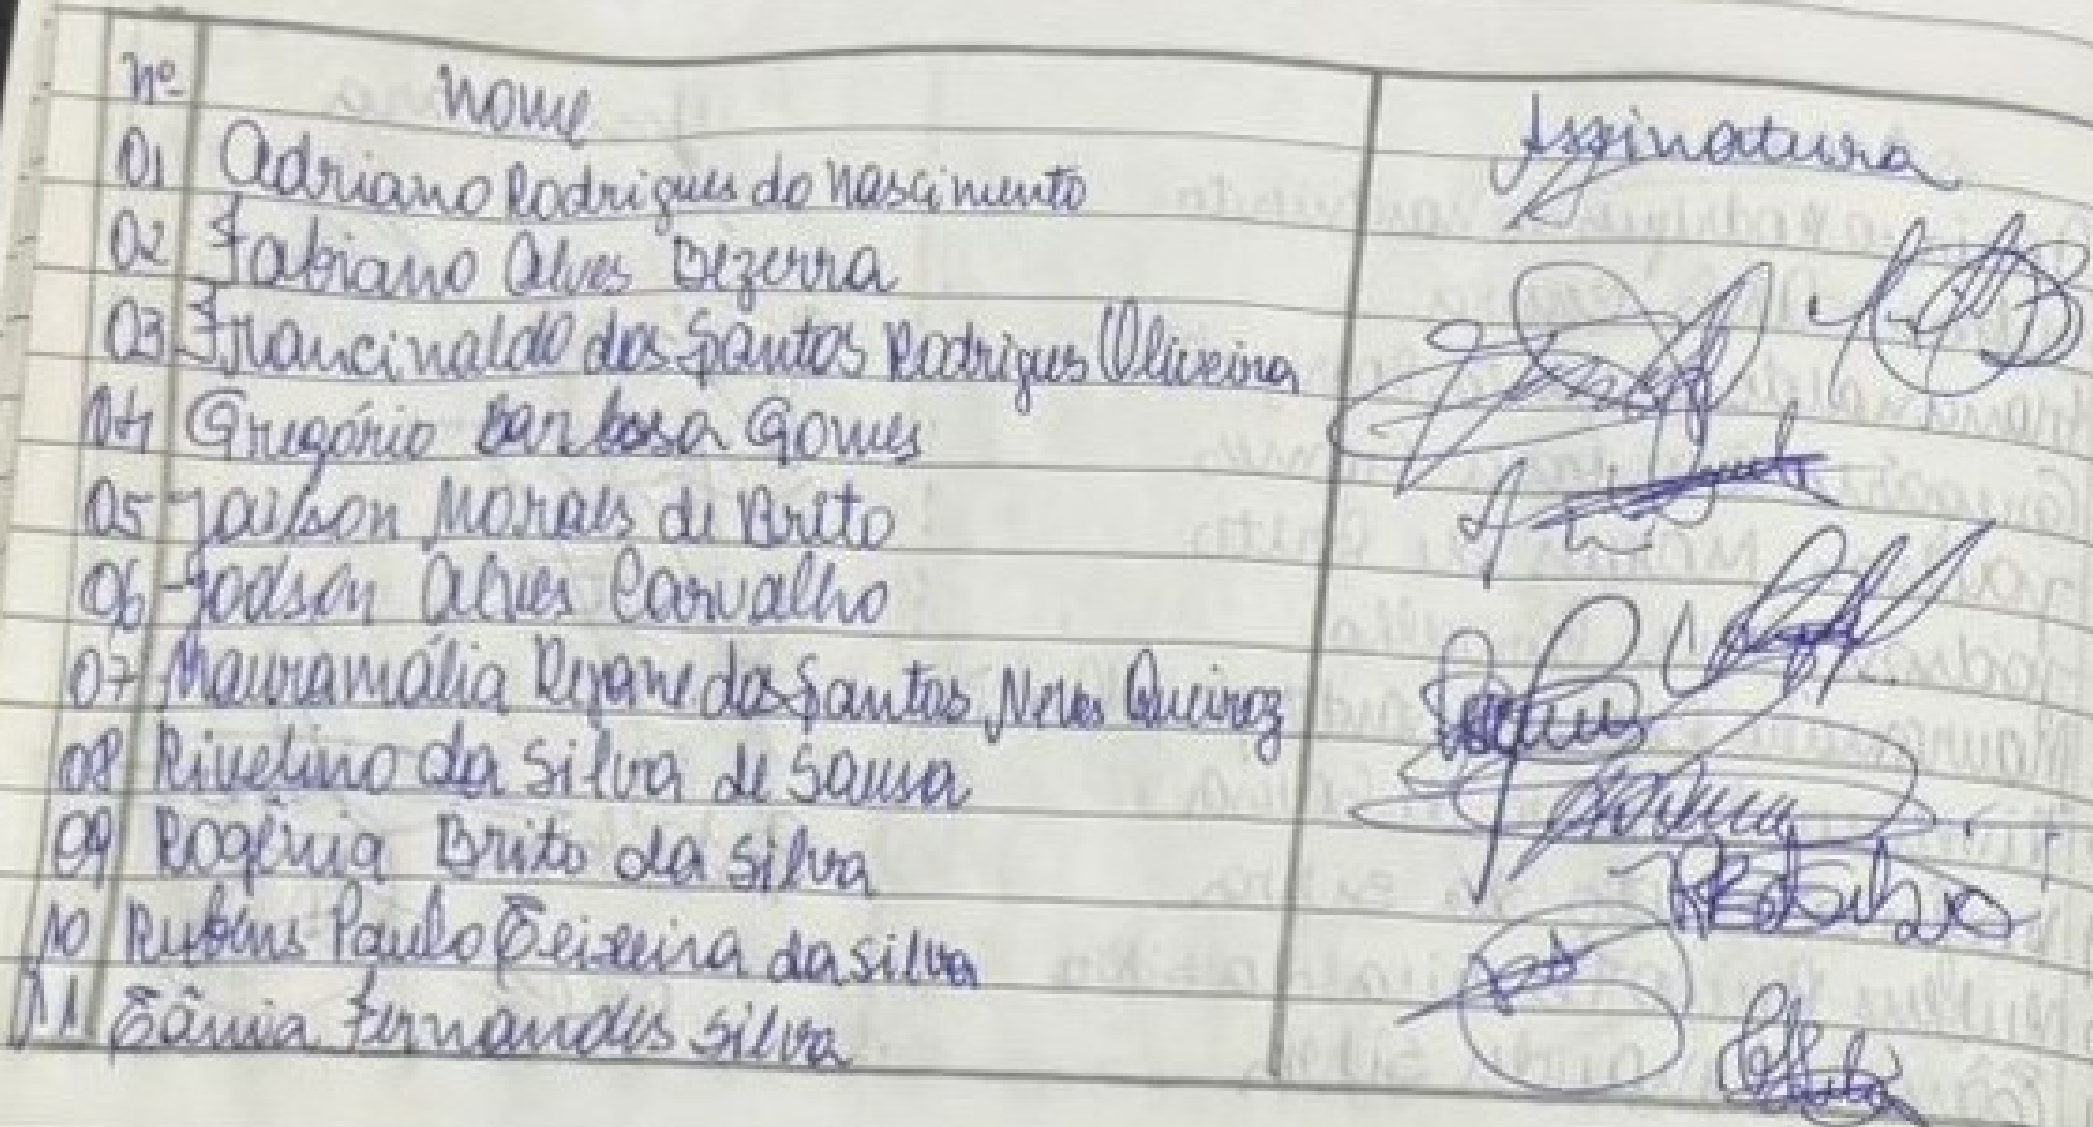 Nº Nome Assinatura
01 Adriano Rodrigues do Nascimento
02 Fabiano Alves Bezerra
03 Francinaldo dos Santos Rodrigues Oliveira
04 Gregório Barbosa Gomes
05 Jailson Morais de Brito
06 Jodson Alves Carvalho
07 Mauramália Rejane dos Santos Neves Queiroz
08 Rivelino da Silva de Sousa
09 Rogênia Brito da Silva
10 Rubens Paulo Teixeira da Silva
11 Tânia Fernandes Silva